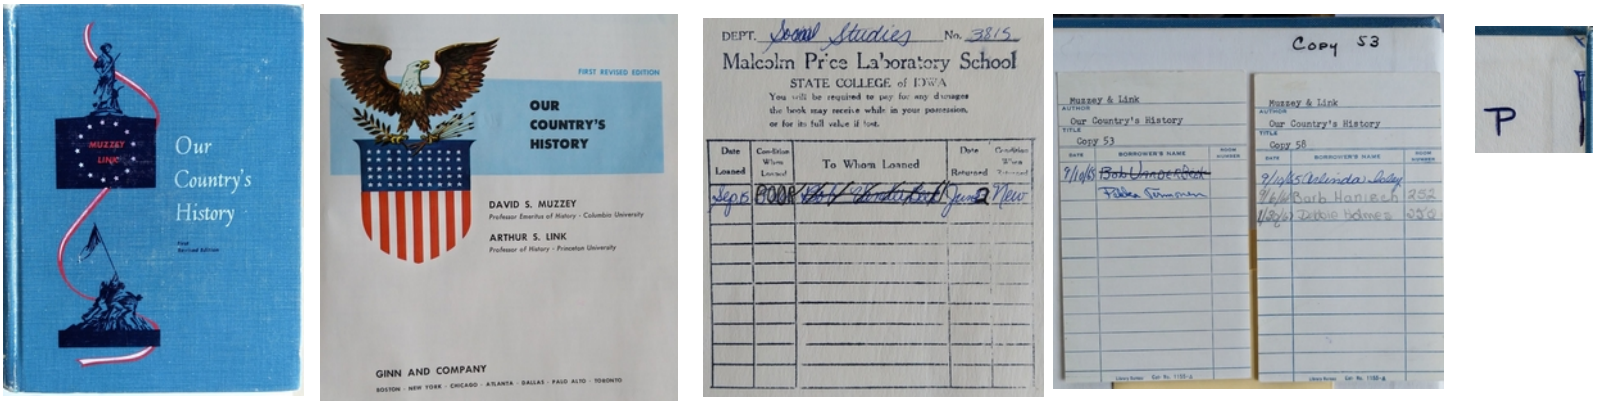 MUZZEY
LINK
Our
Country's
History
First
Revised Edition
FIRST REVISED EDITION
OUR
COUNTRY'S
HISTORY
DAVID S. MUZZEY
Professor Emeritus of History · Columbia University
ARTHUR S. LINK
Professor of History · Princeton University
GINN AND COMPANY
BOSTON · NEW YORK · CHICAGO · ATLANTA · DALLAS · PALO ALTO · TORONTO
DEPT. Social Studies No. 3815
Malcolm Price Laboratory School
STATE COLLEGE of IOWA
You will be required to pay for any damages
the book may receive while in your possession,
or for its full value if lost.
Date Loaned Condition When Loaned To Whom Loaned Date Returned Condition When Returned
Sep 5 GOOD Bob VanderBeek June 2 New
Copy 53
Muzzey & Link
AUTHOR
Our Country's History
TITLE
Copy 53
DATE BORROWER'S NAME ROOM NUMBER
9/10/65 Bob VanderBeek
Library Bureau Cat. No. 1155-A
Muzzey & Link
AUTHOR
Our Country's History
TITLE
Copy 58
DATE BORROWER'S NAME ROOM NUMBER
9/10/65 Arlinda
Barb Hanisch 252
Debbie Holmes 250
Library Bureau Cat. No. 1155-A
P